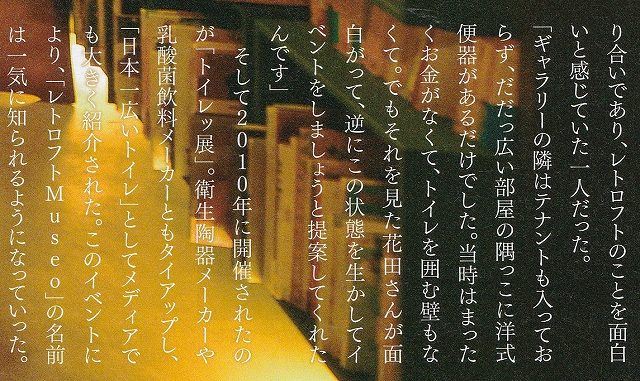 り合いであり、レトロフトのことを面白
いと感じていた一人だった。
「ギャラリーの隣はテナントも入ってお
らず、だだっ広い部屋の隅っこに洋式
便器があるだけでした。当時はまった
くお金がなくて、トイレを囲む壁もな
くて。でもそれを見た花田さんが面
白がって、逆にこの状態を生かしてイ
ベントをしましょうと提案してくれた
んです」
そして2010年に開催されたの
が「トイレッ展」。衛生陶器メーカーや
乳酸菌飲料メーカーともタイアップし、
「日本一広いトイレ」としてメディアで
も大きく紹介された。このイベントに
より、「レトロフトMuseo」の名前
は一気に知られるようになっていった。